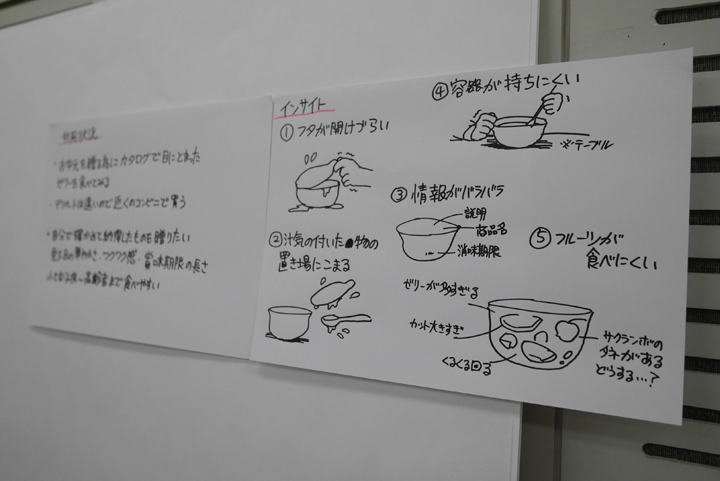 ・お中元を贈る為にカタログで目にとまった
ゼリーを食べてみる
・デパートは遠いので近くのコンビニで買う
・自分で確かめて納得したものを贈りたい
ワクワク感・賞味期限の長さ
高齢者まで食べやすい
インサイト
① フタが開けづらい
② 汁気の付いた物の
置き場にこまる
③ 情報がバラバラ
説明
商品名
消味期限
④ 容器が持ちにくい
※テーブル
⑤ フルーツが
食べにくい
ゼリーが多すぎる
カット大きすぎ
くるくる回る
サクランボの
タネがある
どうする…?